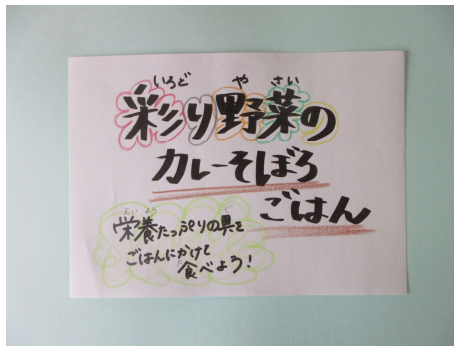 いろど や さい
彩り野菜の
カレーそぼろ
ごはん
えい よう ぐ
栄養たっぷりの具を
ごはんにかけて
食べよう!